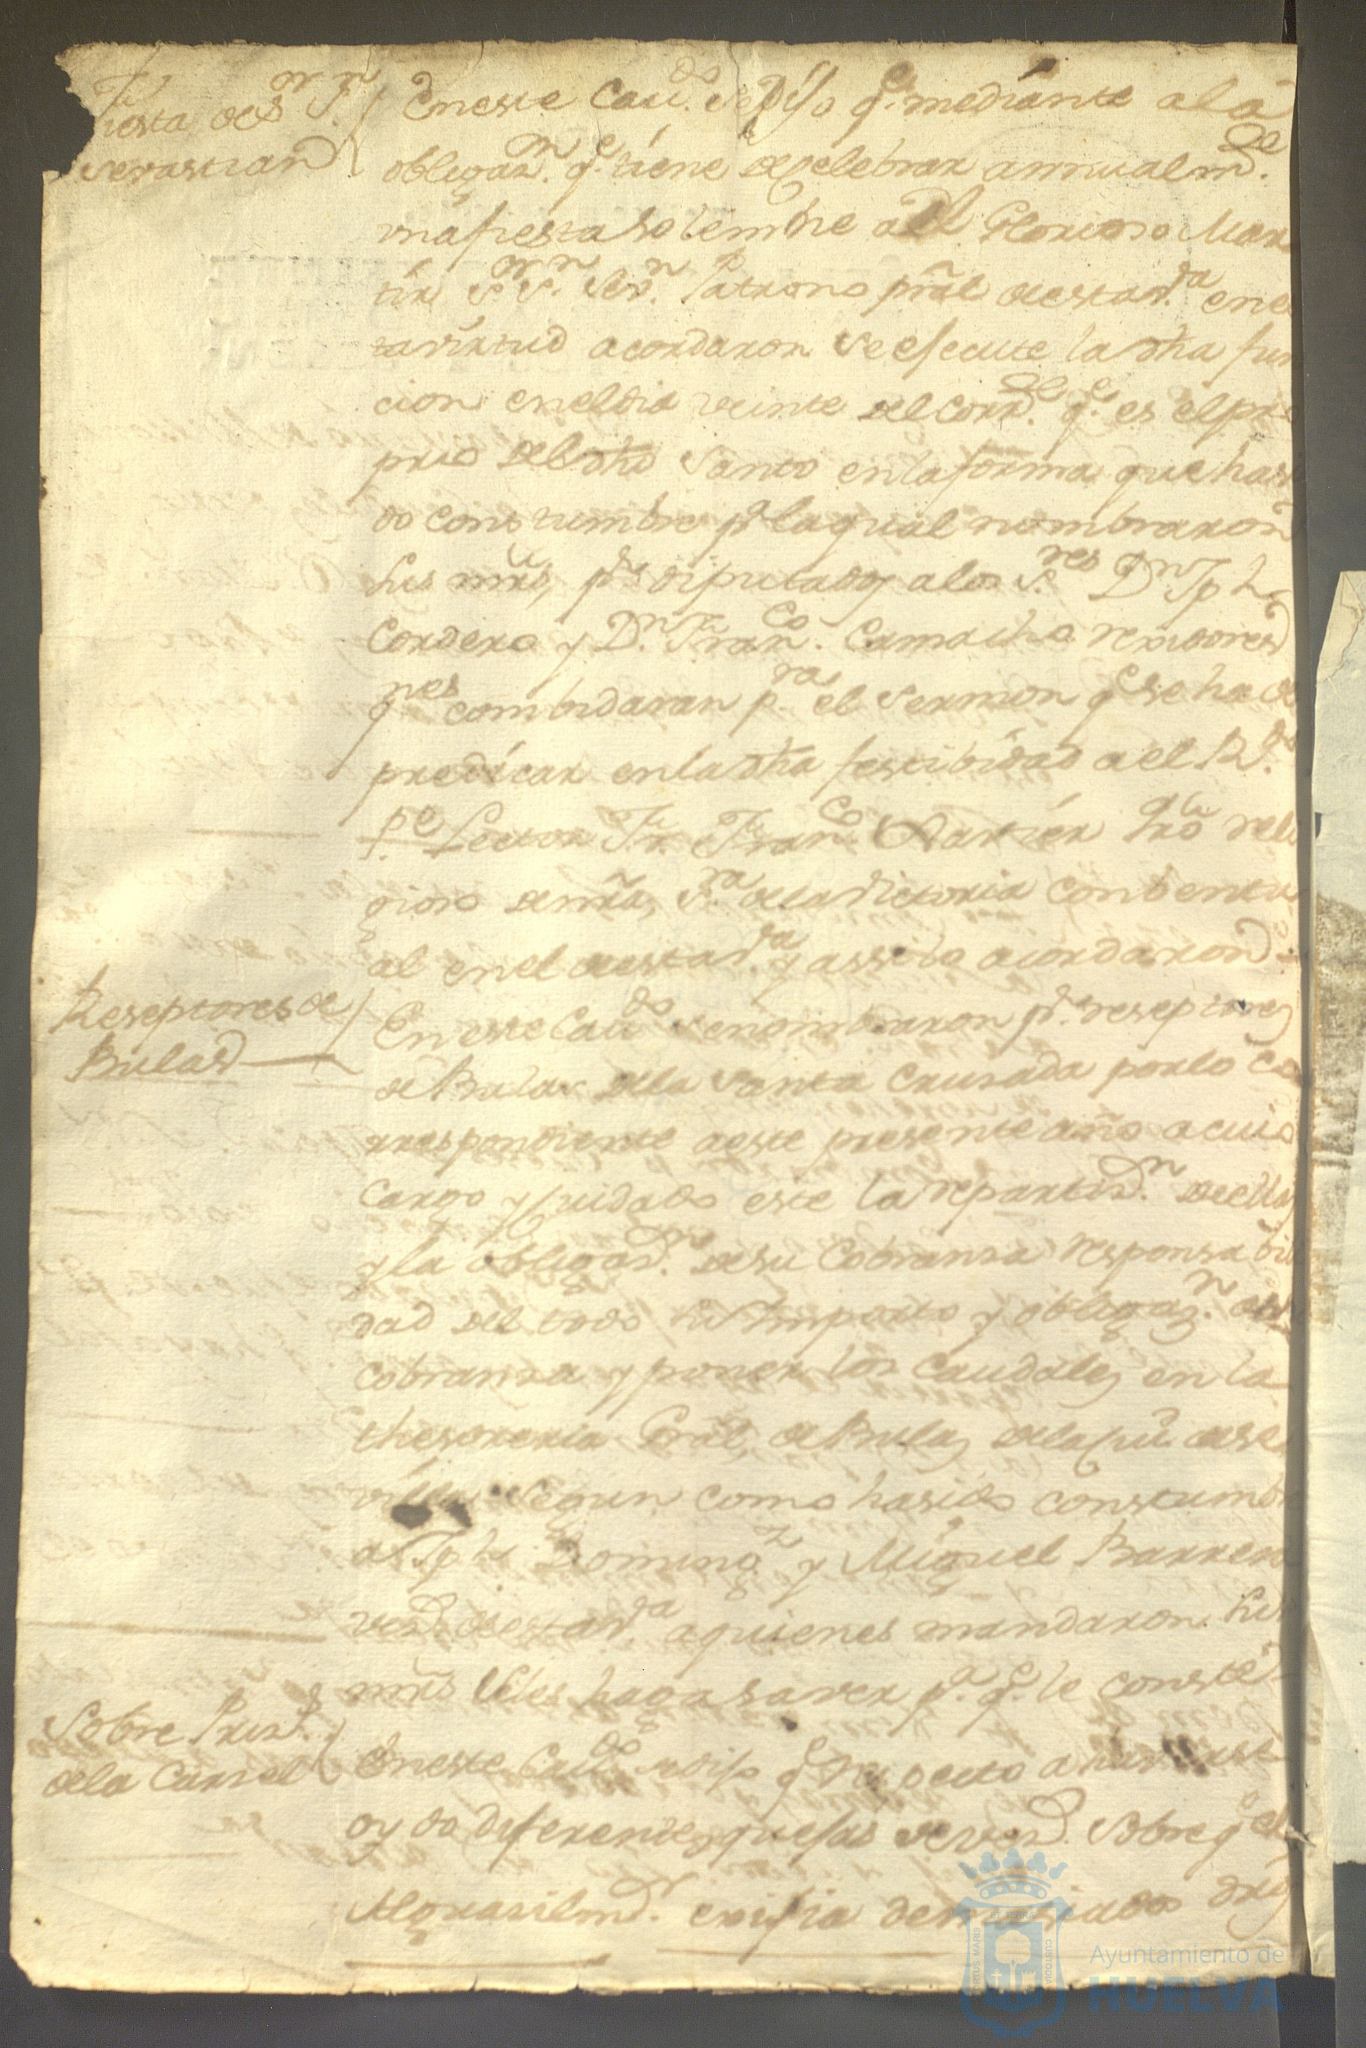 Fiesta de Sr Sn
Sevastian
En este Cavdo. se dijo qe. mediante a la
obligazn. qe. tiene de zelebrar annualmte.
una fiesta solemne a el Glorioso Mar
tir Sr Sn. Sevn. Patrono prãl de esta va. en es
ta virtud acordaron se efecute la dha fun
cion en el dia veinte del corrte. qe. es el pro
prio del dho Santo en la forma que ha si
do constumbre pa la qual nombraron
sus mrds, pr diputados a los Sres. Dn Jph
Cordero y Dn. Franco. Camacho rexidores
qnes combidaran pra. el Sermon qe se ha de
predicar en la dha festibidad a el Rdo.
Pe. Lector Fr. Franco. Martin reli
gioso de nra, Sra. de la Victoria conbentu
al en el de esta va. y assi lo acordaron
Reseptores de
Bulas
En este Cavdo. se nombraron pr. reseptores
de Bulas de la Santa Crusada por lo co
rrespondiente a este presente año a cuio
cargo y cuidado este la repartizn. de ellas
y la obligazn. de su cobransa responsabili
dad del todo su Importe y obligazn. de su
cobransa y poner los caudales en la
thesoreria Gral, de Bulas de la ciud. de Se
villa segun como ha sido constumbre
a Jph Domingz y Miguel Barrera
vezs. de esta va. a quienes mandaron sus
mrds se les haga saver pa. qe. le conste
Sobre Priss.
de la Carsel
En este Cavdo. se dijo qe respecto a haverse
oydo diferentes quejas de vezs. sobre qe el
Alguasil mr. exijia demasiados drs
Ayuntamiento de
HUELVA